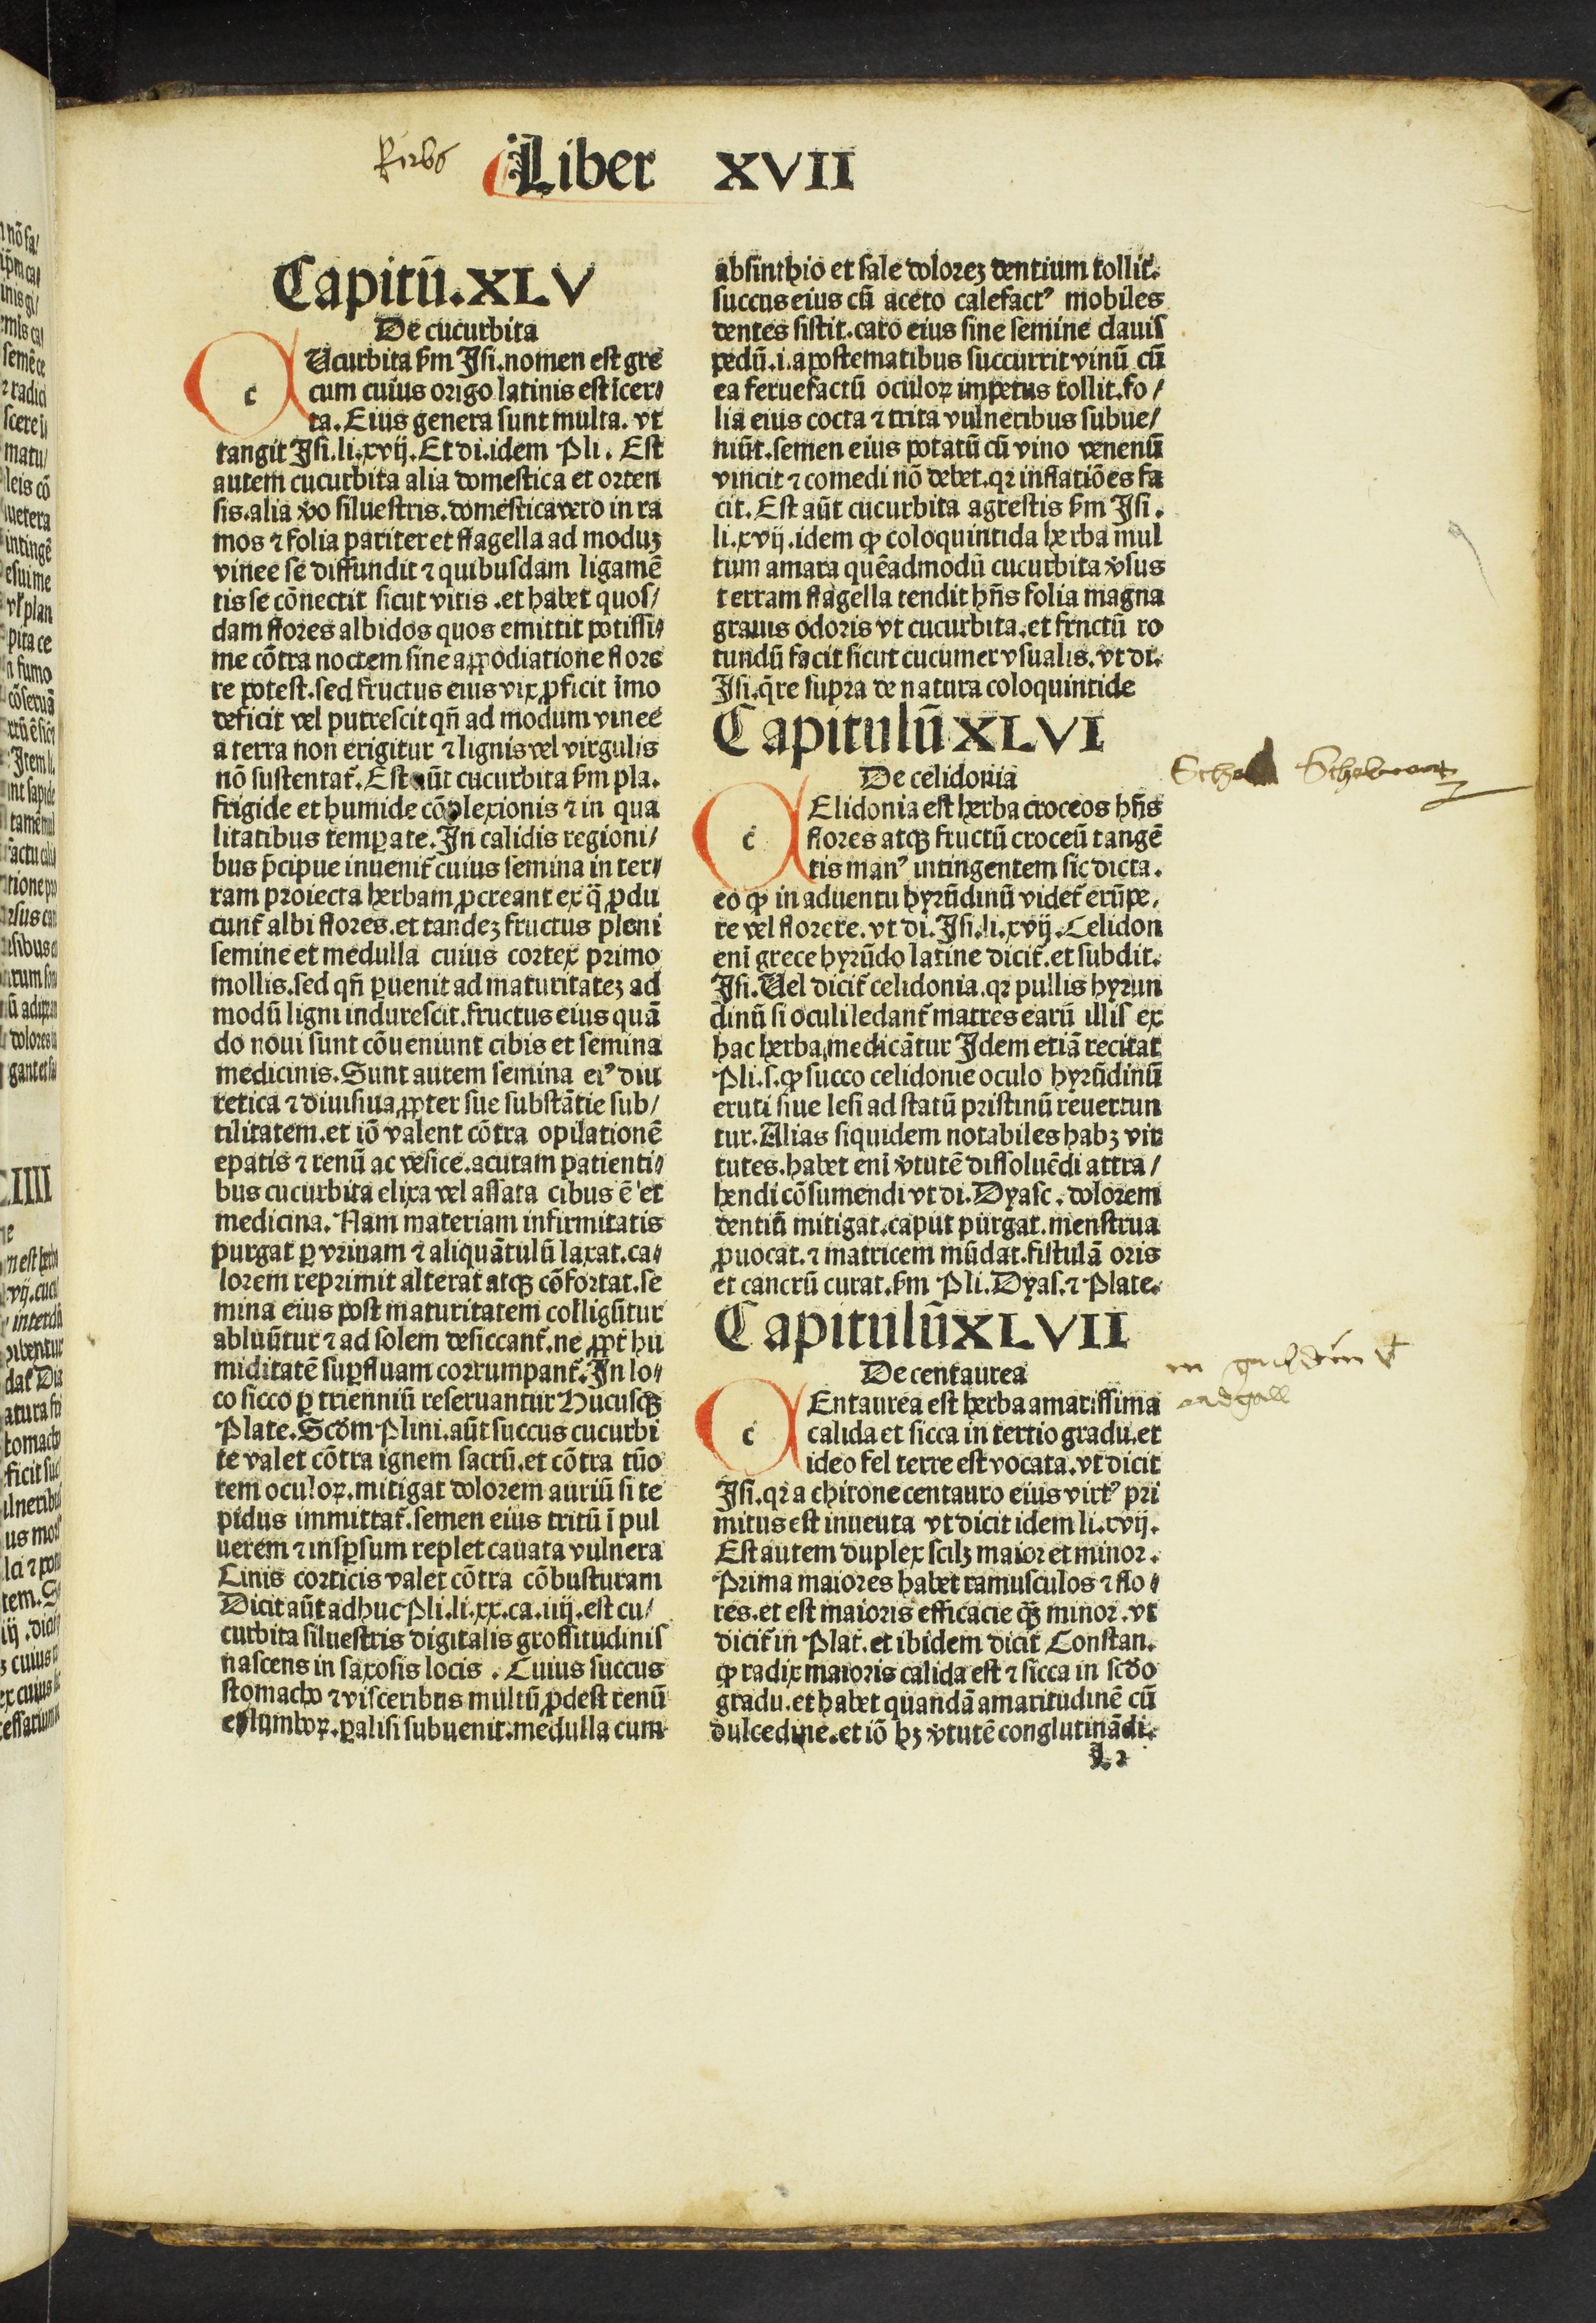 Kirbs
Liber XVII
Capitū.XLV
De cucurbita
c Ucurbita ẜm Isi.nomen est gre
cum cuius origo latinis est īcer/
ta. Eius genera sunt multa. vt
tangit Isi.li.xvij. Et di.idem Pli. Est
autem cucurbita alia domestica et orten
sis.alia v̄o siluestris.domestica vero in ra
mos ⁊ folia pariter et flagella ad moduꝫ
vinee se diffundit ⁊ quibusdam ligamē
tis se cōnectit sicut vitis .et habet quos/
dam flores albidos quos emittit potissi/
me cōtra noctem sine appodiatione flore
re potest.sed fructus eius vix ꝓficit īmo
deficit vel putrescit qn̄ ad modum vinee
a terra non erigitur ⁊ lignis vel virgulis
nō sustentat̄. Est aūt cucurbita ẜm pla.
frigide et humide cōplexionis ⁊ in qua
litatibus temꝑate. In calidis regioni/
bus p̄cipue inuenit̄ cuius semina in ter/
ram proiecta herbam ꝓcreant ex q̄ ꝓdu
cunt̄ albi flores.et tandeꝫ fructus pleni
semine et medulla cuius cortex primo
mollis.sed qn̄ ꝑuenit ad maturitateꝫ ad
modū ligni indurescit.fructus eius quā
do noui sunt cōueniunt cibis et semina
medicinis. Sunt autem semina eiꝰ diu
retica ⁊ diuisiua ꝓpter sue substātie sub/
tilitatem.et iō valent cōtra opilationē
epatis ⁊ renū ac vesice.acutam patienti/
bus cucurbita elixa vel assata cibus ē et
medicina. Nam materiam infirmitatis
purgat ꝑ vrinam ⁊ aliquātulū laxat.ca/
lorem reprimit alterat atqꝫ cōfortat.se
mina eius post maturitatem colligūtur
abluūtur ⁊ ad solem desiccant̄.ne ꝓpt̄ hu
miditatē suꝑfluam corrumpant̄. In lo/
co sicco ꝑ trienniū reseruantur Hucusqꝫ
Plate. Scd̄m Plini.aūt succus cucurbi
te valet cōtra ignem sacrū.et cōtra tūo
rem oculoꝝ.mitigat dolorem auriū si te
pidus immittat̄.semen eius tritū ī pul
uerem ⁊ insꝑsum replet cauata vulnera
Cinis corticis valet cōtra cōbusturam
Dicit aūt adhuc Pli.li.xx.ca.iiij.est cu/
curbita siluestris digitalis grossitudinis
nascens in saxosis locis . Cuius succus
stomacho ⁊ visceribus multū ꝓdest renū
et lumboꝝ.ꝑalisi subuenit.medulla cum
absinthio et sale doloreꝫ dentium tollit.
succus eius cū aceto calefactꝰ mobiles
dentes sistit.caro eius sine semine clauis
pedū.i.apostematibus succurrit vinū cū
ea feruefactū oculoꝝ impetus tollit.fo/
lia eius cocta ⁊ trita vulneribus subue/
niūt.semen eius potatū cū vino venenū
vincit ⁊ comedi nō debet.qꝛ inflatiōes fa
cit. Est aūt cucurbita agrestis ẜm Isi.
li.xvij.idem ꝙ coloquintida herba mul
tum amara quēadmodū cucurbita v̄sus
terram flagella tendit hn̄s folia magna
grauis odoris vt cucurbita.et frnctū ro
tundū facit sicut cucumer vsualis.vt di.
Isi.q̄re supra de natura coloquintide
CapitulūXLVI
De celidonia
c Elidonia est herba croceos hn̄s
flores atqꝫ fructū croceū tangē
tis manꝰ intingentem sic dicta.
eo ꝙ in aduentu hyrūdinū videt̄ erūpe/
re vel florere.vt di. Isi.li.xvij. Celidon
eni grece hyrūdo latine dicit̄.et subdit.
Isi. Uel dicit̄ celidonia.qꝛ pullis hyrun
dinū si oculi ledant̄ matres earū illis ex
hac herba medicātur Idem etiā recitat
Pli.s.ꝙ succo celidonie oculo hyrūdinū
eruti siue lesi ad statū pristinū reuertun
tur. Alias siquidem notabiles habꝫ vir
tutes.habet eni v̄tutē dissoluēdi attra/
hendi cōsumendi vt di. Dyasc. dolorem
dentiū mitigat.caput purgat.menstrua
ꝓuocat.⁊ matricem mūdat.fistulā oris
et cancrū curat.ẜm Pli. Dyas.⁊ Plate.
CapitulūXLVII
De centaurea
c Entaurea est herba amarissima
calida et sicca in tertio gradu.et
ideo fel terre est vocata.vt dicit
Isi.qꝛ a chirone centauro eius virtꝰ pri
mitus est inueuta vt dicit idem li.xvij.
Est autem duplex scilꝫ maior et minor.
Prima maiores habet ramusculos ⁊ flo/
res.et est maioris efficacie qꝫ minor.vt
dicit̄ in Plat̄.et ibidem dicit Constan.
ꝙ radix maioris calida est ⁊ sicca in scd̄o
gradu.et habet quandā amaritudinē cū
dulcedine.et iō hꝫ v̄tutē conglutināndi.
L 2